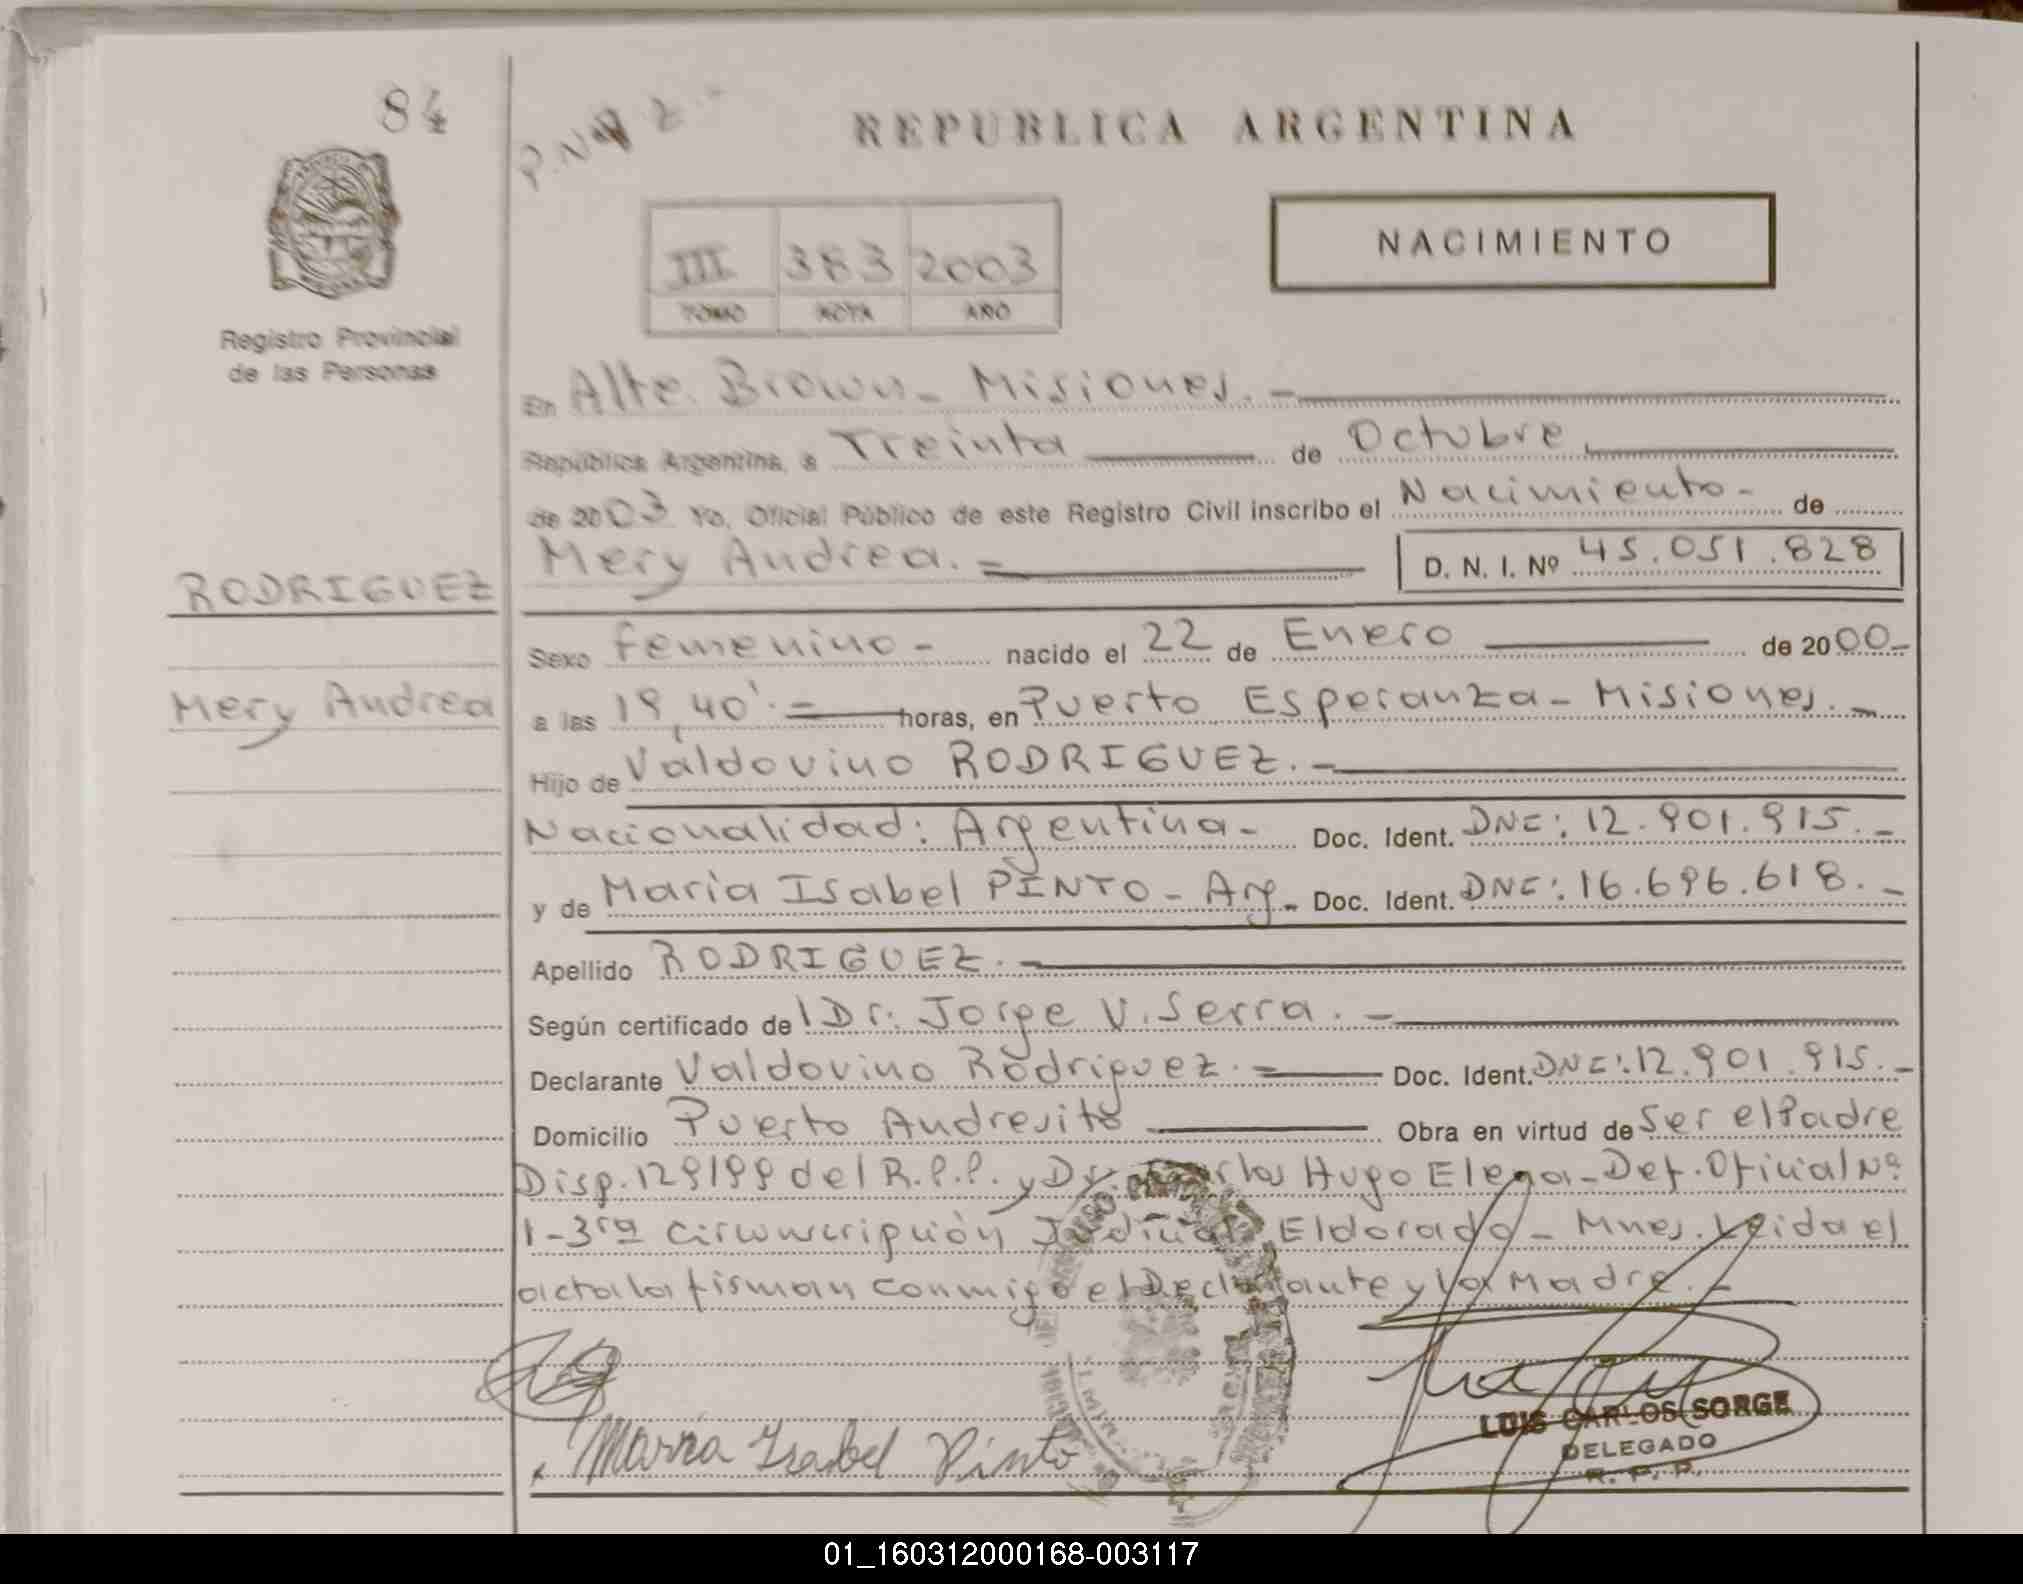 84
REPUBLICA ARGENTINA
III 383 2003
TOMO ACTA AÑO
NACIMIENTO
Registro Provincial
de las Personas
En Alte. Brown - Misiones. -
República Argentina, a Treinta de Octubre
de 2003 Yo, Oficial Público de este Registro Civil inscribo el Nacimiento - de
Mery Andrea. = D. N. I. Nº 45.051.828
RODRIGUEZ
Mery Andrea
Sexo femenino - nacido el 22 de Enero de 2000 -
a las 19,40'. = horas, en Puerto Esperanza - Misiones. -
Hijo de Valdovino RODRIGUEZ. -
Nacionalidad: Argentina - Doc. Ident. DNI: 12.901.915. -
y de Maria Isabel PINTO - Arg - Doc. Ident. DNI: 16.696.618. -
Apellido RODRIGUEZ. -
Según certificado del Dr. Jorge V. Serra. -
Declarante Valdovino Rodriguez. = Doc. Ident. DNI: 12.901.915. -
Domicilio Puerto Andresito Obra en virtud de Ser el Padre
Disp. 129/99 del R.P.P. y Dr. Carlos Hugo Elena - Def. Oficial Nº
1 - 3ra Circunscripción Judicial Eldorado - Mnes. Leida el
acta la firman conmigo el Declarante y la Madre. -
Maria Isabel Pinto
LUIS CARLOS SORGE
DELEGADO
R. P. P.
01_160312000168-003117